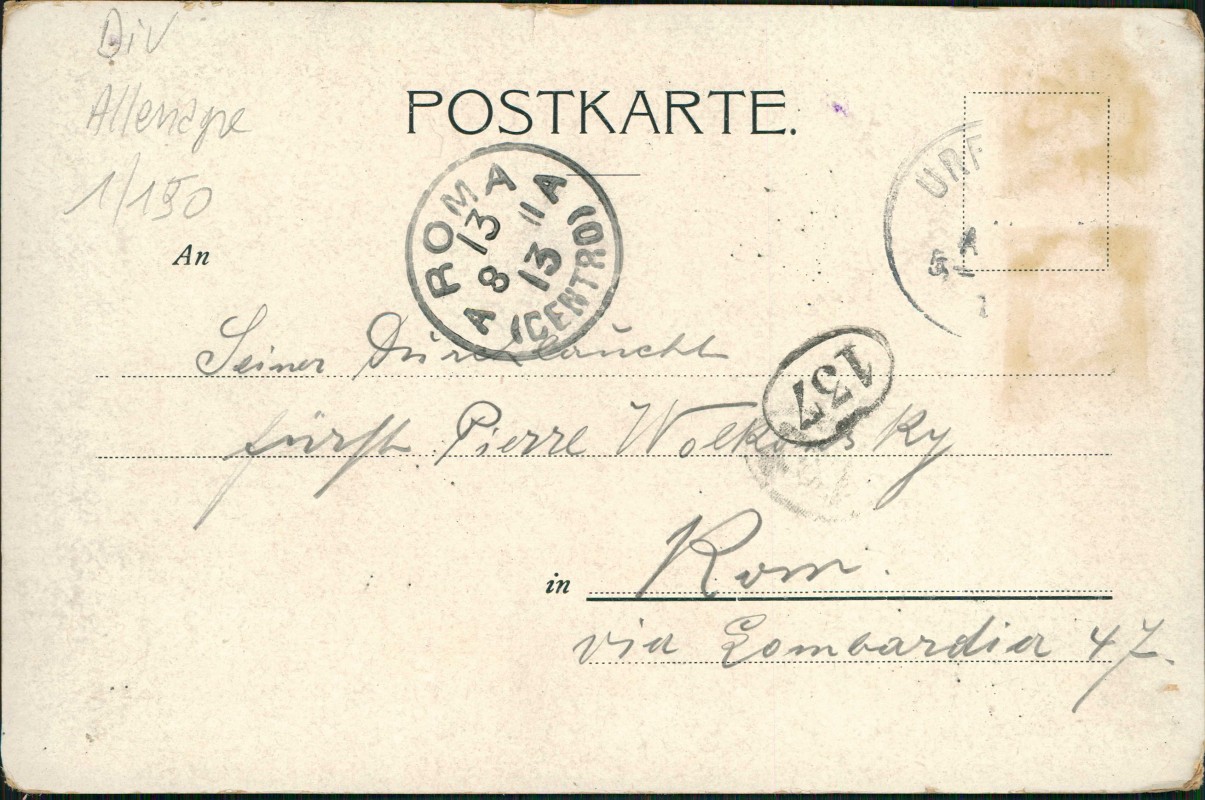 Div
Allemagne
1/150
POSTKARTE.
ROMA
13 11 A
A 8 13
(CENTRO)
URF
An
Seiner Durchlaucht
137
fürst Pierre Wolkonsky
in Rom.
via Lombardia 47.